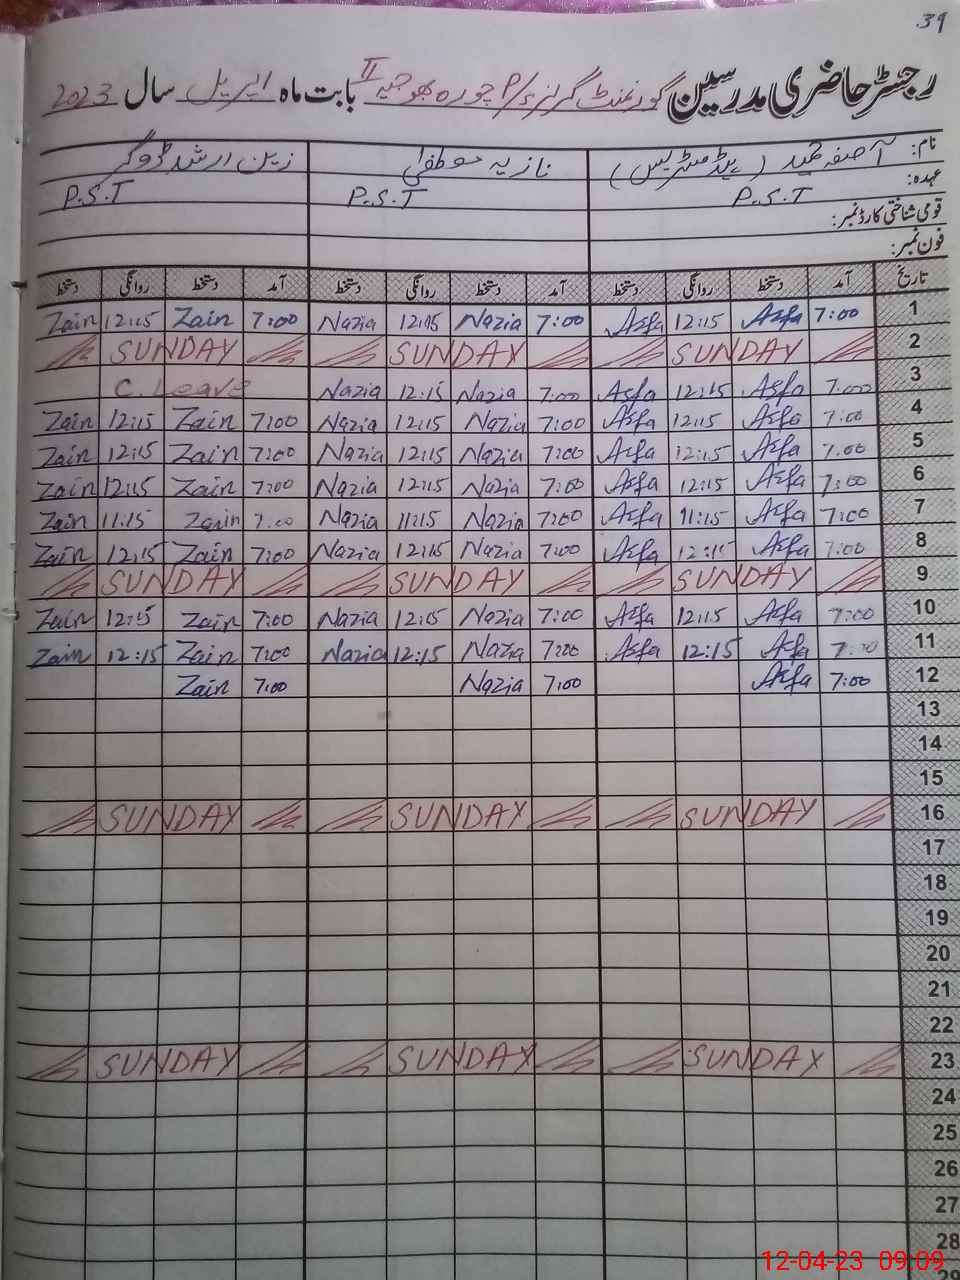 39
رجسٹر حاضری مدرسین گورنمنٹ گرلز P/S چورہ بھوجیہ II بابت ماہ اپریل سال 2023
نام: آصفہ حمید (ہیڈ مسٹریس) نازیہ مصطفٰی زین ارشد ڈوگر
عہدہ: P.S.T P.S.T P.S.T
قومی شناختی کارڈ نمبر:
فون نمبر:
تاریخ آمد دستخط روانگی دستخط آمد دستخط روانگی دستخط آمد دستخط روانگی دستخط
Zain 12:15 Zain 7:00 Nazia 12:15 Nazia 7:00 Asfa 12:15 Asfa 7:00 1
SUNDAY SUNDAY SUNDAY 2
C. Leave Nazia 12:15 Nazia 7:00 Asfa 12:15 Asfa 7:00 3
Zain 12:15 Zain 7:00 Nazia 12:15 Nazia 7:00 Asfa 12:15 Asfa 7:00 4
Zain 12:15 Zain 7:00 Nazia 12:15 Nazia 7:00 Asfa 12:15 Asfa 7:00 5
Zain 12:15 Zain 7:00 Nazia 12:15 Nazia 7:00 Asfa 12:15 Asfa 7:00 6
Zain 11:15 Zain 7:00 Nazia 11:15 Nazia 7:00 Asfa 11:15 Asfa 7:00 7
Zain 12:15 Zain 7:00 Nazia 12:15 Nazia 7:00 Asfa 12:15 Asfa 7:00 8
SUNDAY SUNDAY SUNDAY 9
Zain 12:15 Zain 7:00 Nazia 12:15 Nazia 7:00 Asfa 12:15 Asfa 7:00 10
Zain 12:15 Zain 7:00 Nazia 12:15 Nazia 7:00 Asfa 12:15 Asfa 7:00 11
Zain 7:00 Nazia 7:00 Asfa 7:00 12
13
14
15
SUNDAY SUNDAY SUNDAY 16
17
18
19
20
21
22
SUNDAY SUNDAY SUNDAY 23
24
25
26
27
28
29
12-04-23 09:09